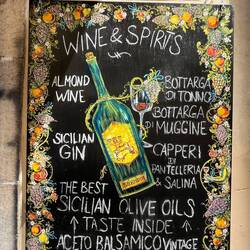 WINE & SPIRITS
ALMOND
WINE
SICILIAN
GIN
BOTTARGA
DI TONNO
BOTTARGA
DI MUGGINE
CAPPERI
DI
PANTELLERIA
& SALINA
THE BEST
SICILIAN OLIVE OILS
↑ TASTE INSIDE ↑
ACETO BALSAMICO VINTAGE